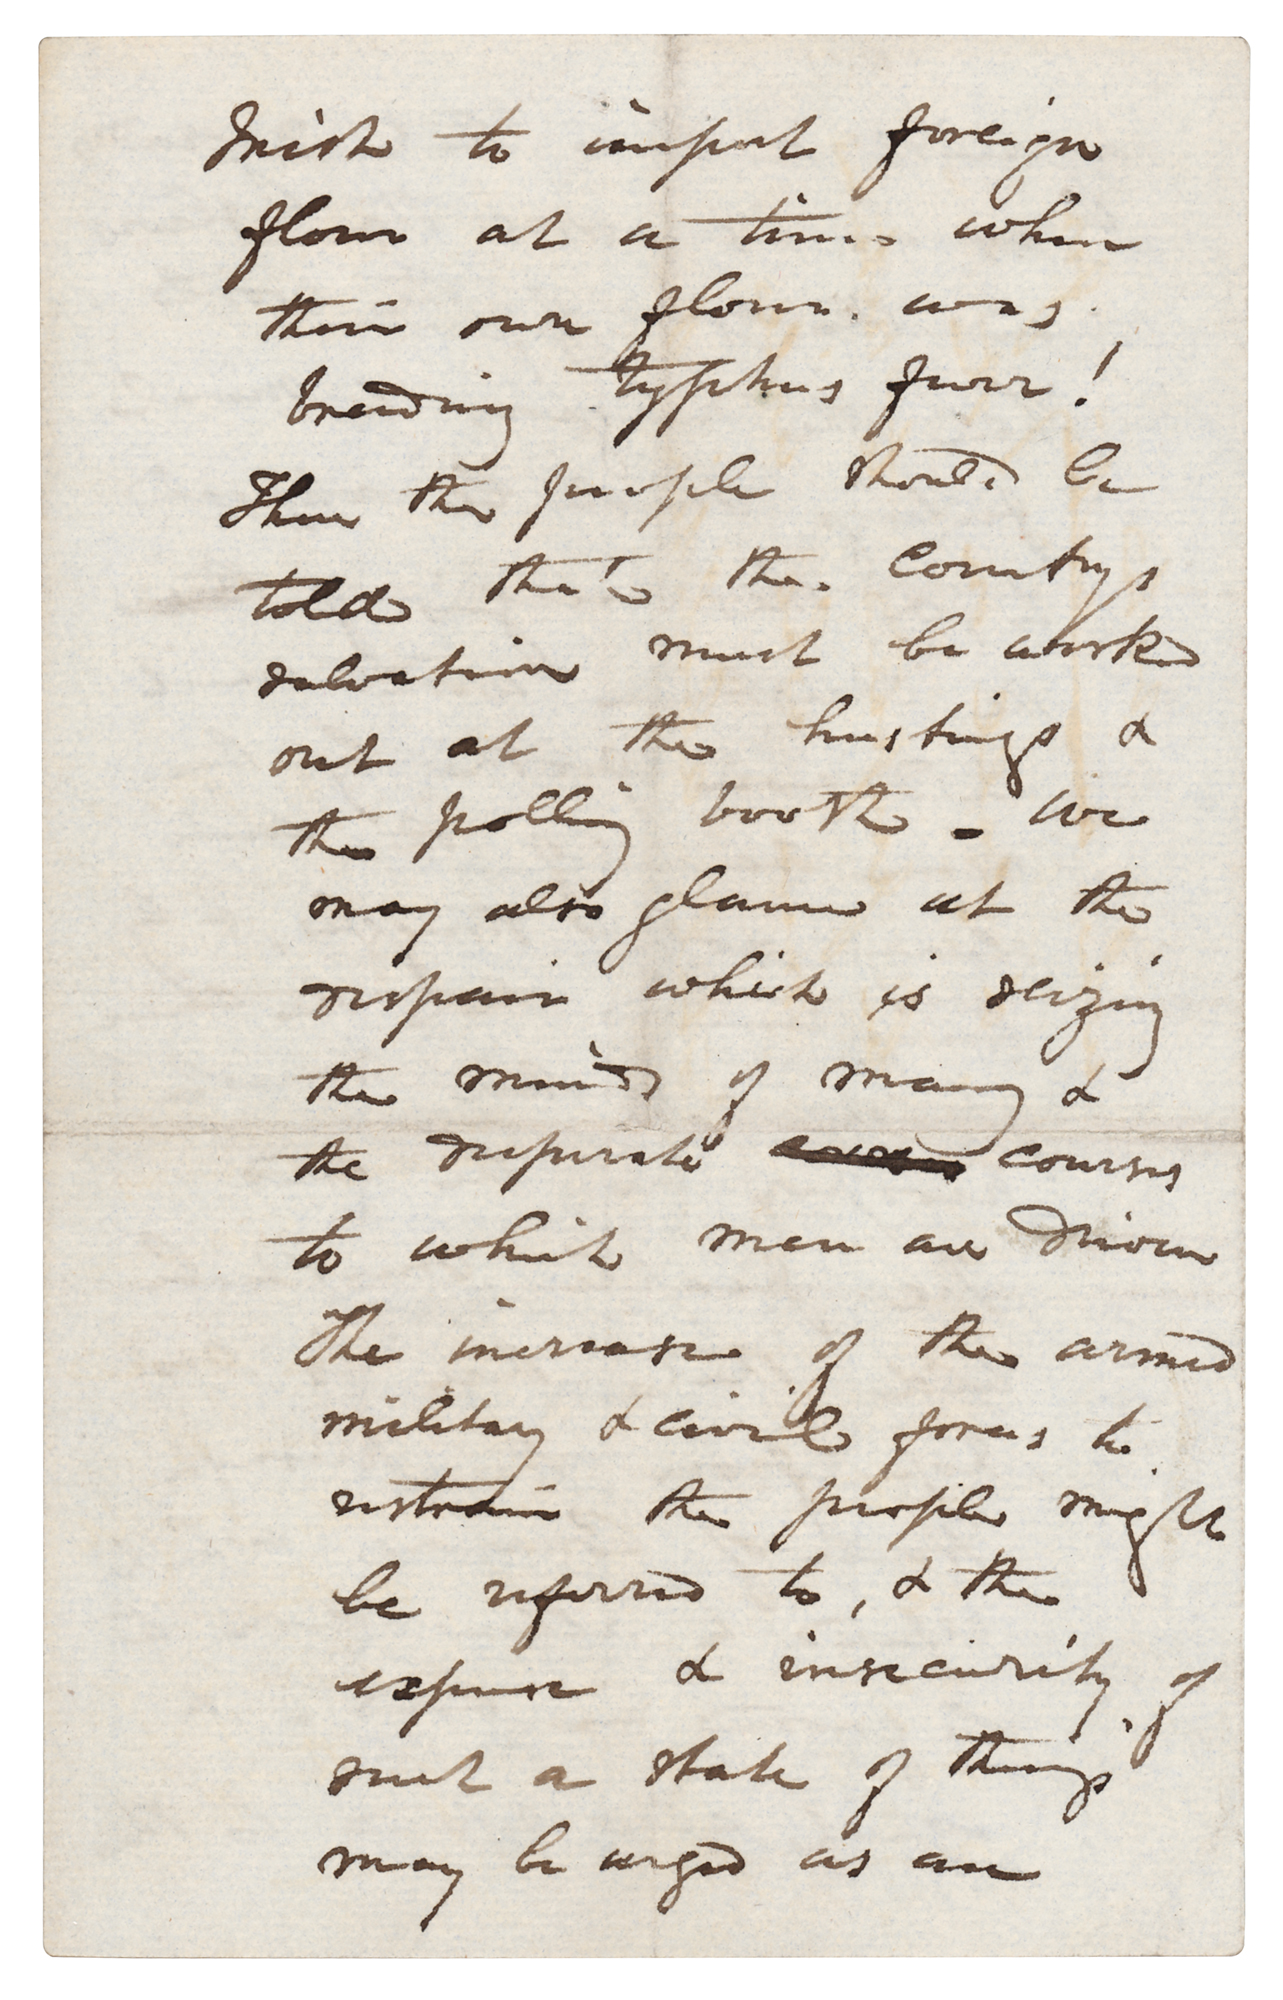 Irish to import foreign
flour at a time when
their own flour was
breeding typhus fever!
Then the people should be
told that the Country's
salvation must be worked
out at the hustings &
the polling booth - we
may also glance at the
despair which is seizing
the minds of many &
the desperate courses
to which men are driven
The increase of the armed
military & civil forces to
restrain the people might
be referred to, & the
expense & insecurity of
such a state of things
may be urged as an